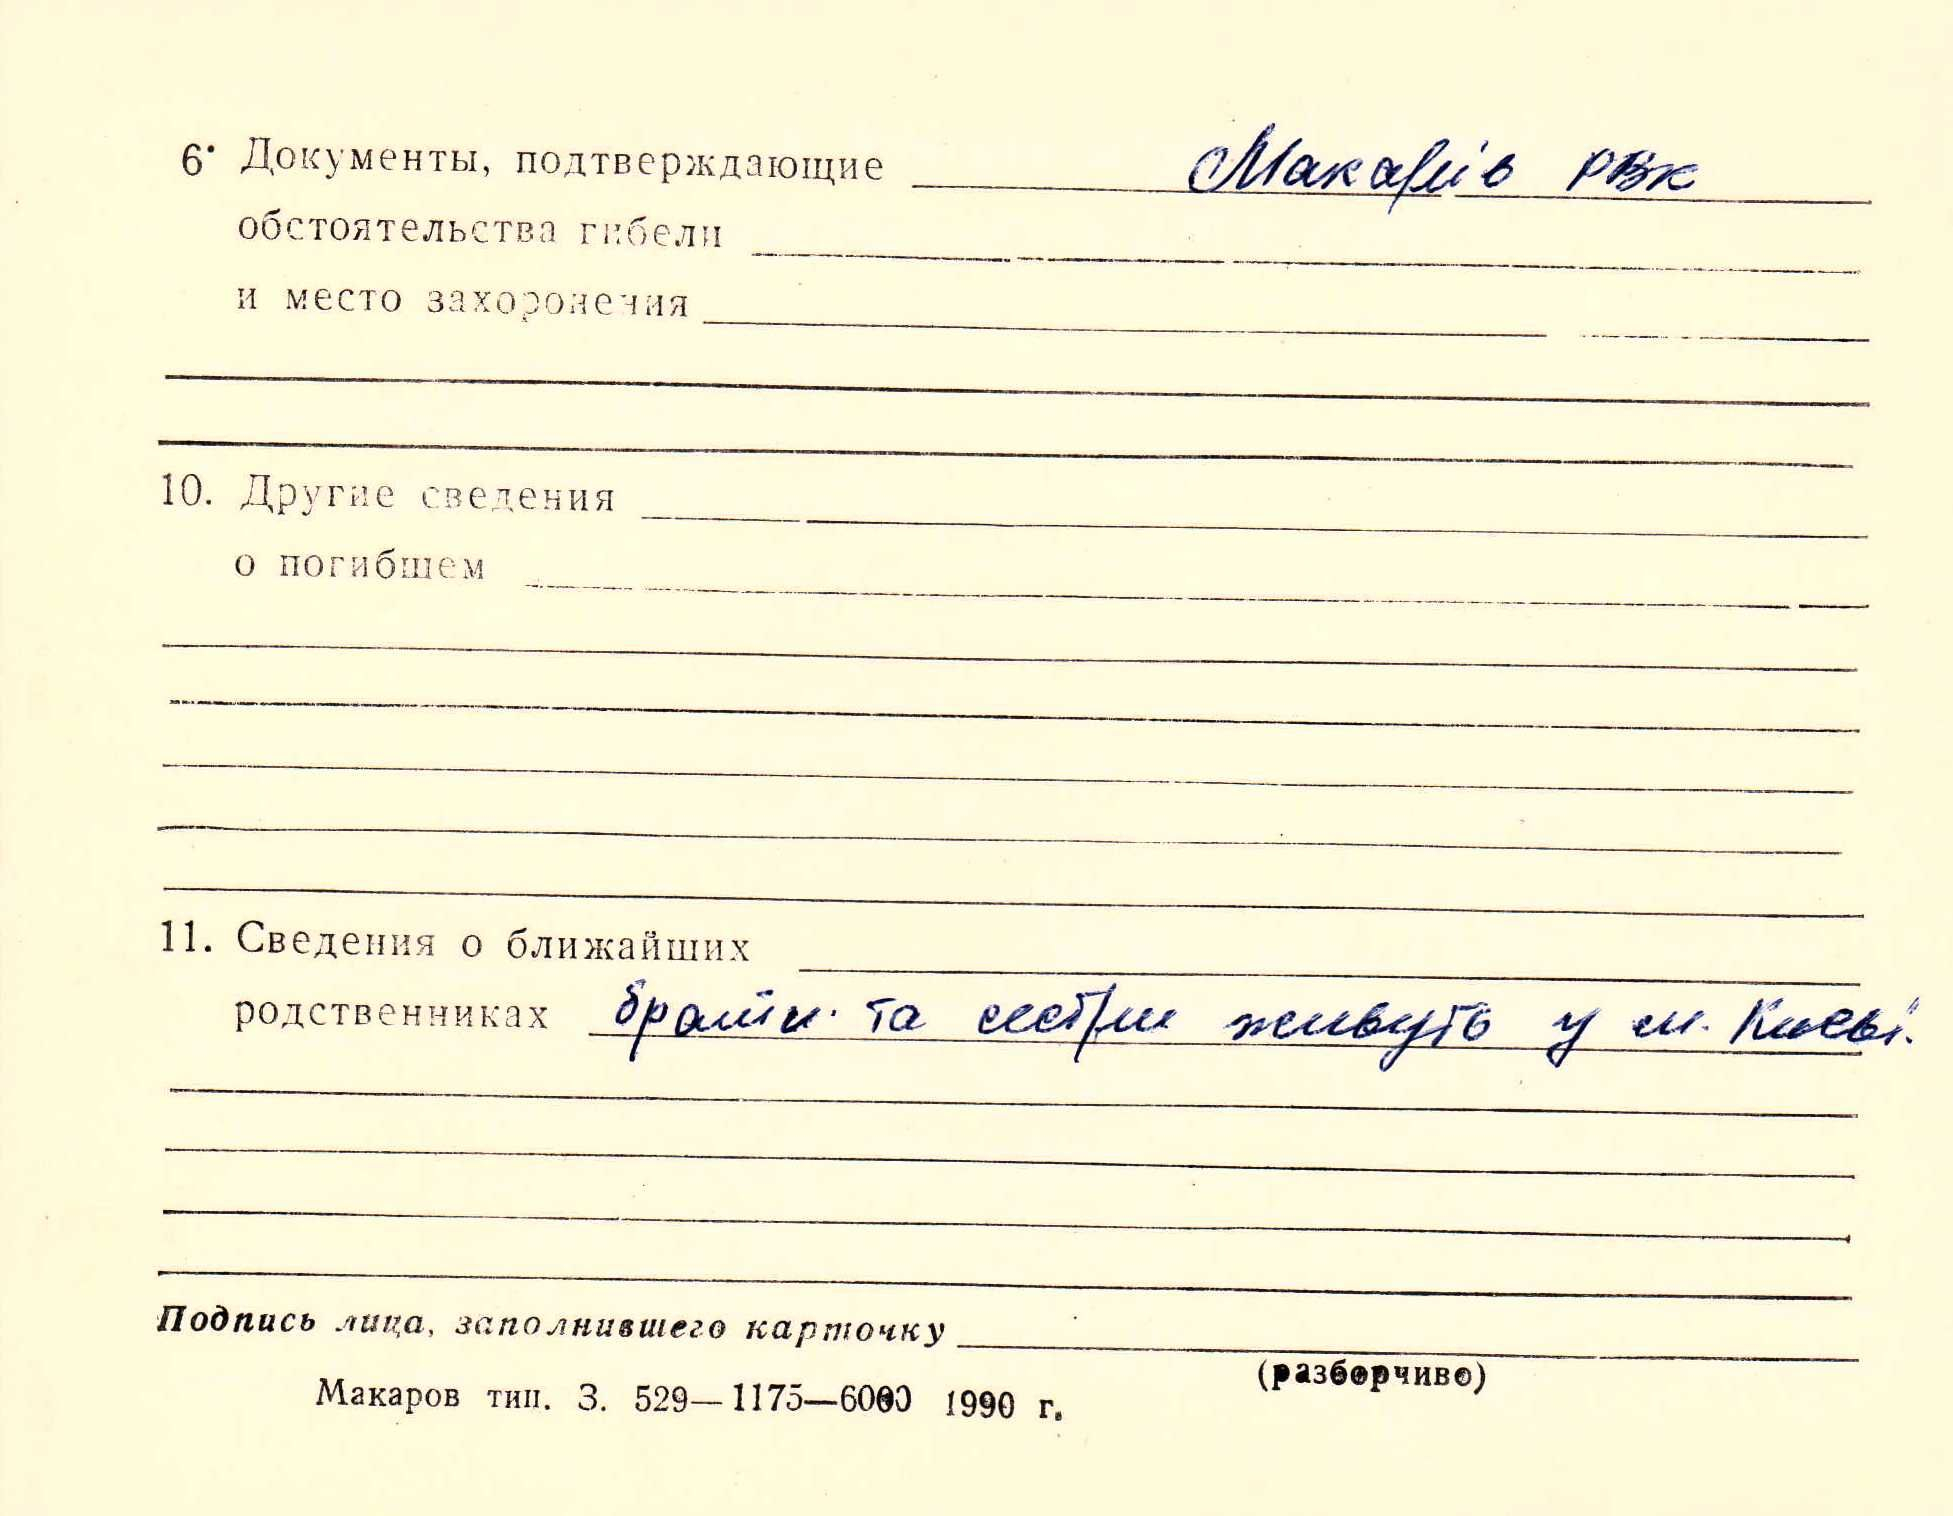 6. Документы, подтверждающие Макарів РВК
обстоятельства гибели
и место захоронения
10. Другие сведения
о погибшем
11. Сведения о ближайших
родственниках брати та сестри живуть у м. Києві.
Подпись лица, заполнившего карточку
(разборчиво)
Макаров тип. З. 529—1175—6000 1990 г.